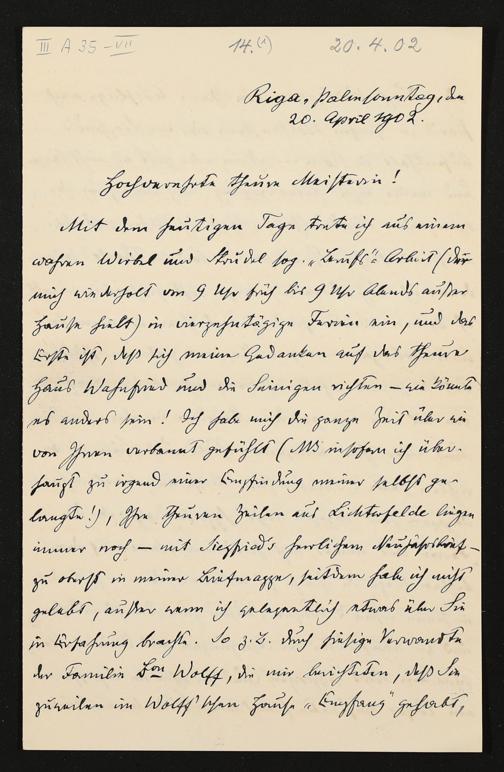 III A 35-VII 14.(1) 20.4.02
Riga, Palmsonntag, den
20. April 1902.
Hochverehrte theure Meisterin!
Mit dem heutigen Tage trete ich aus einem
wahren Wirbel und Strudel sog. „Berufs"-Arbeit (der
mich wiederholt von 9 Uhr früh bis 9 Uhr Abends außer
Hause hielt) in vierzehntägige Ferien ein, und das
Erste ist, daß sich meine Gedanken auf das theure
Haus Wahnfried und die Seinigen richten – wie könnte
es anders sein! Ich habe mich die ganze Zeit über wie
von Ihnen verbannt gefühlt (NB insofern ich über-
haupt zu irgend einer Empfindung meiner selbst ge-
langte!), Ihre theuren Zeilen aus Lichterfelde liegen
immer noch – mit Siegfried's herrlichem Neujahrsbrief –
zu oberst in meiner Briefmappe, seitdem habe ich nichts
gehabt, außer wenn ich gelegentlich etwas über Sie
in Erfahrung brachte. So z.B. durch hiesige Verwandte
der Familie Bon Wolff, die mir berichteten, daß Sie
zuweilen im Wolff'schen Hause „Empfang" gehabt,